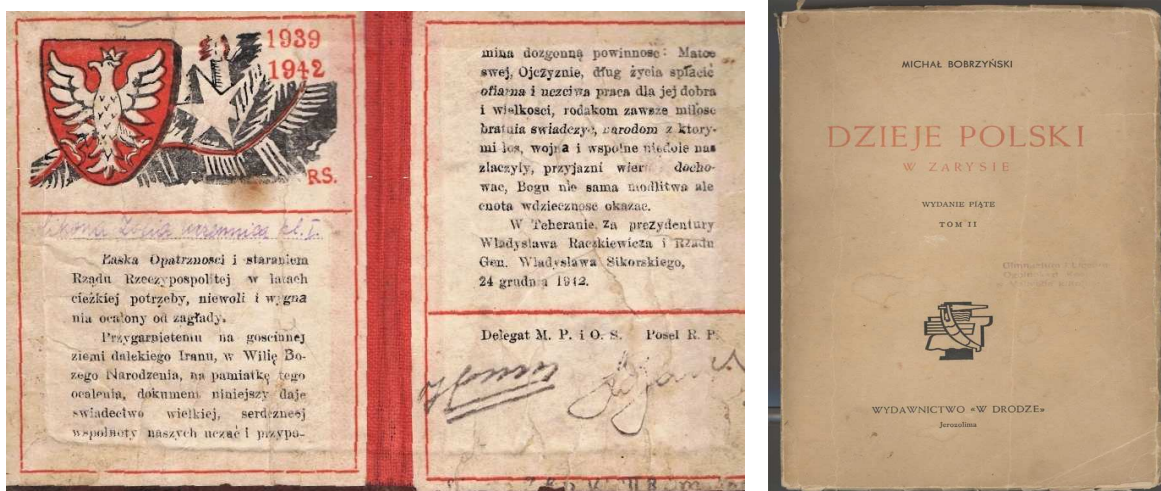 1939
1942
R.S.
uczennica kl. I.
Łaska Opatrznosci i staraniem
Rządu Rzeczypospolitej w latach
ciężkiej potrzeby, niewoli i wygna
nia ocalony od zagłady.
Przygarnietemu na goscinnej
ziemi dalekiego Iranu, w Wilię Bo-
zego Narodzenia, na pamiatkę tego
ocalenia, dokument niniejszy daje
swiadectwo wielkiej, serdeznesj
wspolnoty naszych uczać i przypo-
mina dozgonną powinnosc: Matce
swej, Ojczyznie, dług życia spłacic
ofiarna i uczciwa praca dla jej dobra
i wielkosci, rodakom zawsze miłosc
bratnia swiadczyc, narodom z ktory-
mi los, wojna i wspolne niedole nas
zlaczyly, przyjazni wiern docho-
wac, Bogu nie sama modlitwa ale
cnota wdziecznosc okazac.
W Teheranie. Za prezydentury
Władysława Raczkiewicza i Rządu
Gen. Wladysława Sikorskiego,
24 grudnia 1942.
Delegat M. P. i O. S. Posel R. P.
MICHAŁ BOBRZYŃSKI
DZIEJE POLSKI
W ZARYSIE
WYDANIE PIĄTE
TOM II
WYDAWNICTWO «W DRODZE»
Jerozolima